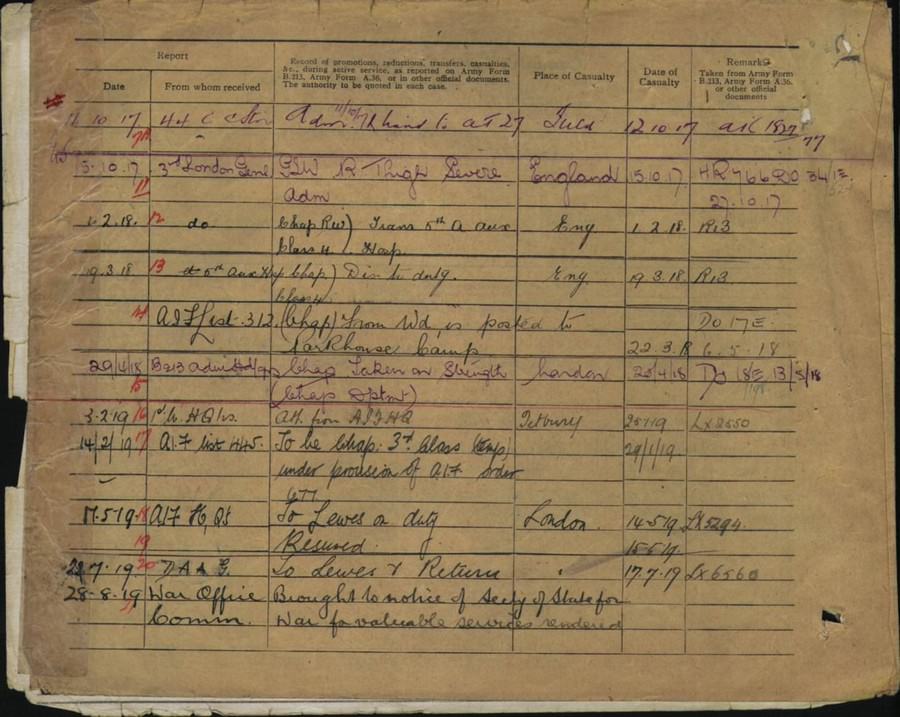 Report
Record of promotions, reductions, transfers, casualties,
&c., during active service, as reported on Army Form
B.213, Army Form A.36, or in other official documents.
The authority to be quoted in each case.
Place of Casualty
Date of
Casualty
Remarks
Taken from Army Form
B.213, Army Form A.36,
or other official
documents
Date
From whom received
10 17 44 C C Stn Adm to AT 27 Field 12 10 17
15.10.17 3rd London Gene GSW R Thigh Severe England 15.10.17
11 Adm 27.10.17
1.2.18. 12 do Chap Trans 5th A aux Eng 1.2.18. B13
Class 4 Hosp
19.3.18 13 5th aux Chap) Dis to duty. Eng 19.3.18 B13
Class 4
14 AIF List 312 (Chap) From Wd, is posted to DO 17E
Parkhouse Camp 22.3.18 6.5.18
29/4/18 B213 adm Hdqrs Chap Taken on Strength London 23/4/18 DO 18E 13/5/18
15 (Chap Dptmt)
3.2.19 16 1st Tr HQ att. from AIF HQ Tetbury 25119 Lx2550
14/2/19 17 AIF list 445. To be Chap. 3rd Class temp 29/1/19.
under provision of AIF order
677
17.5.19 18 AIF H Qs To Lewes on duty London. 14.5.19 Lx5294
19 Resumed. 15.5.19
22.7.19 20 DAAG To Lewes & Return " 17.7.19 Lx6560
28.8.19 War Office Brought to notice of Secty of State for
Comm. War for valuable services rendered